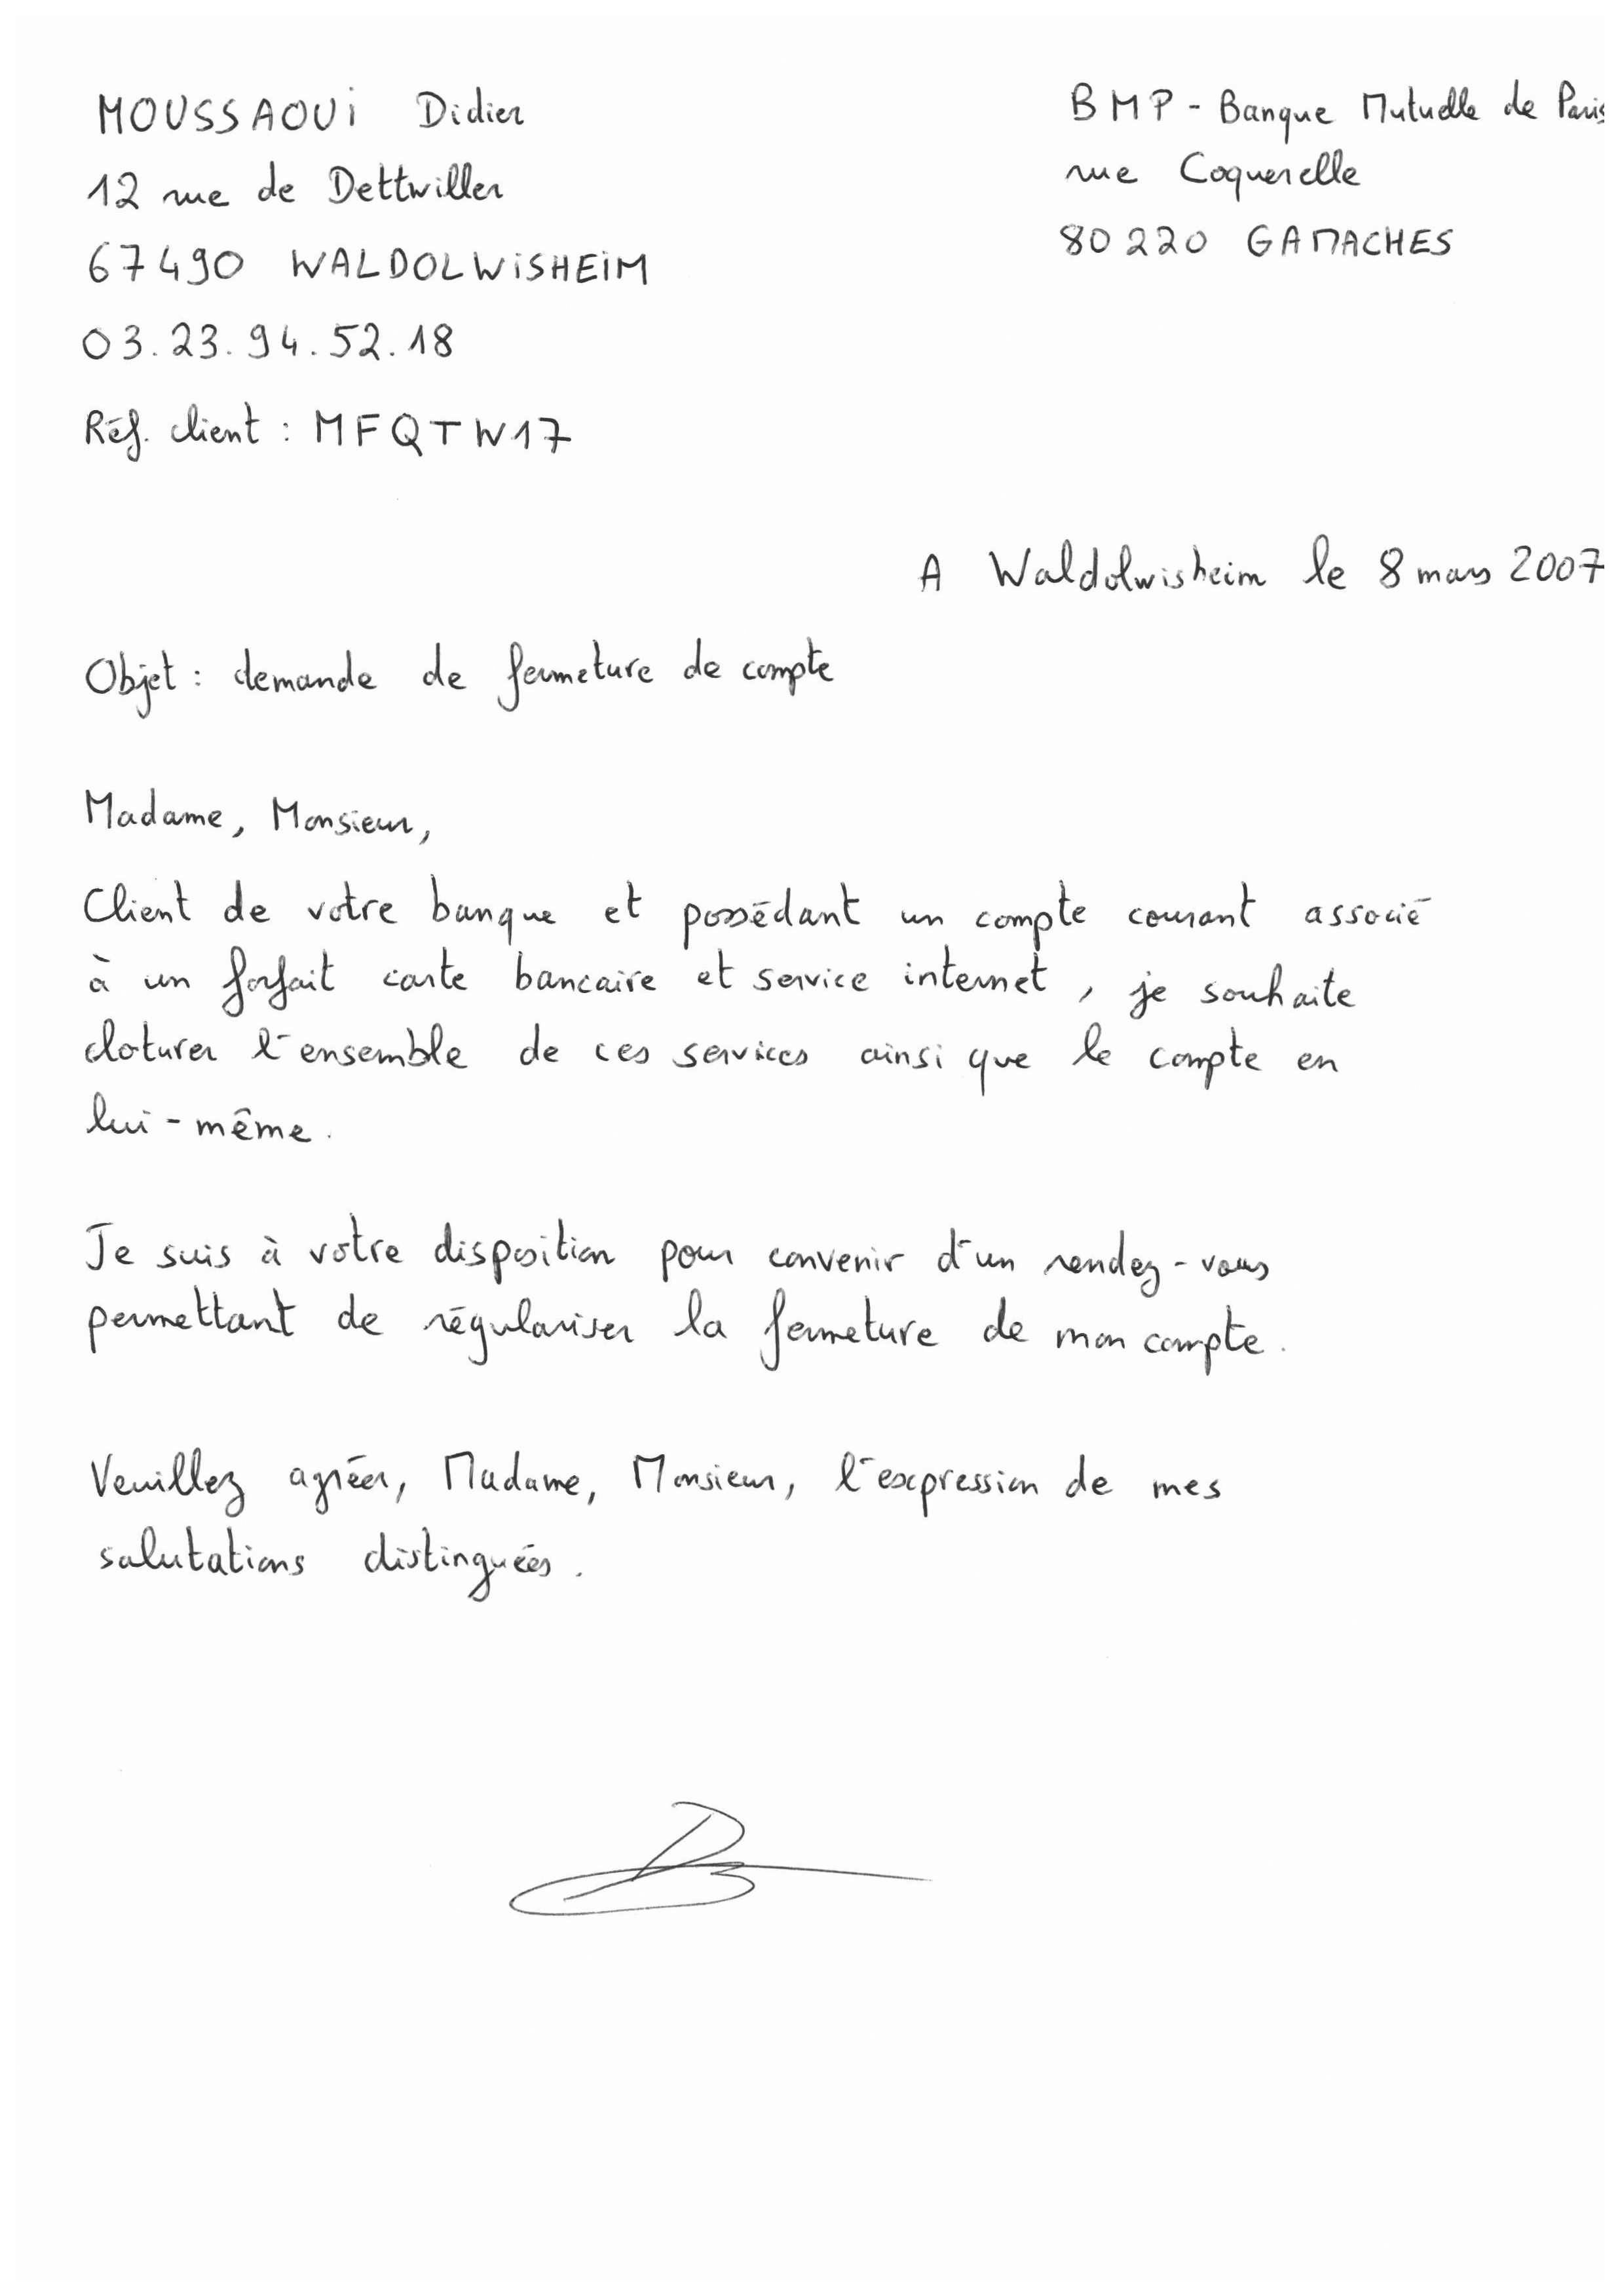 MOUSSAOUi Didier
12 rue de Dettwiller
67490 WALDOLWiSHEiM
03.23.94.52.18
Réf. client : MFQTW17
BMP - Banque Mutuelle de Paris
rue Coquerelle
80220 GAMACHES
A Waldolwisheim le 8 mars 2007
Objet : demande de fermeture de compte
Madame, Monsieur,
Client de votre banque et possédant un compte courant associé
à un forfait carte bancaire et service internet, je souhaite
cloturer l'ensemble de ces services ainsi que le compte en
lui-même.
Je suis à votre disposition pour convenir d'un rendez-vous
permettant de régulariser la fermeture de mon compte.
Veuillez agréer, Madame, Monsieur, l'expression de mes
salutations distinguées.